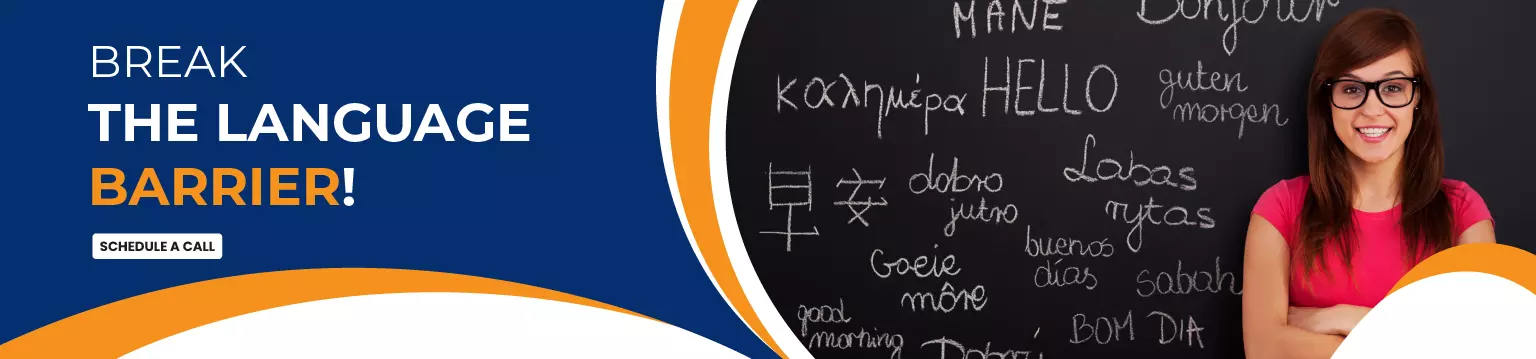 BREAK
THE LANGUAGE
BARRIER!
SCHEDULE A CALL
MANE
Bonjour
καλημέρα
HELLO
guten
morgen
早安
dobro
jutro
Labas
rytas
Goeie
môre
buenos
días
sabah
good
morning
BOM DIA